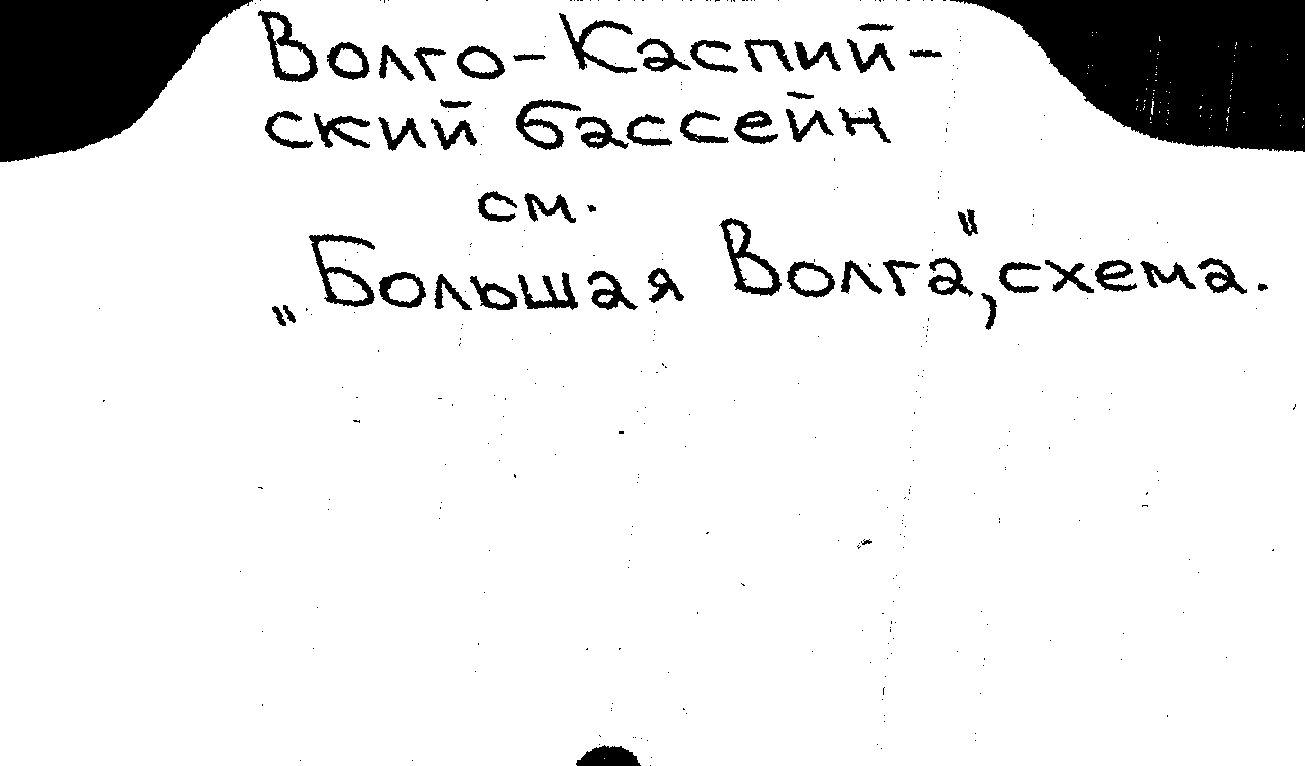 Волго-Каспий-
ский бассейн
см.
„Большая Волга", схема.